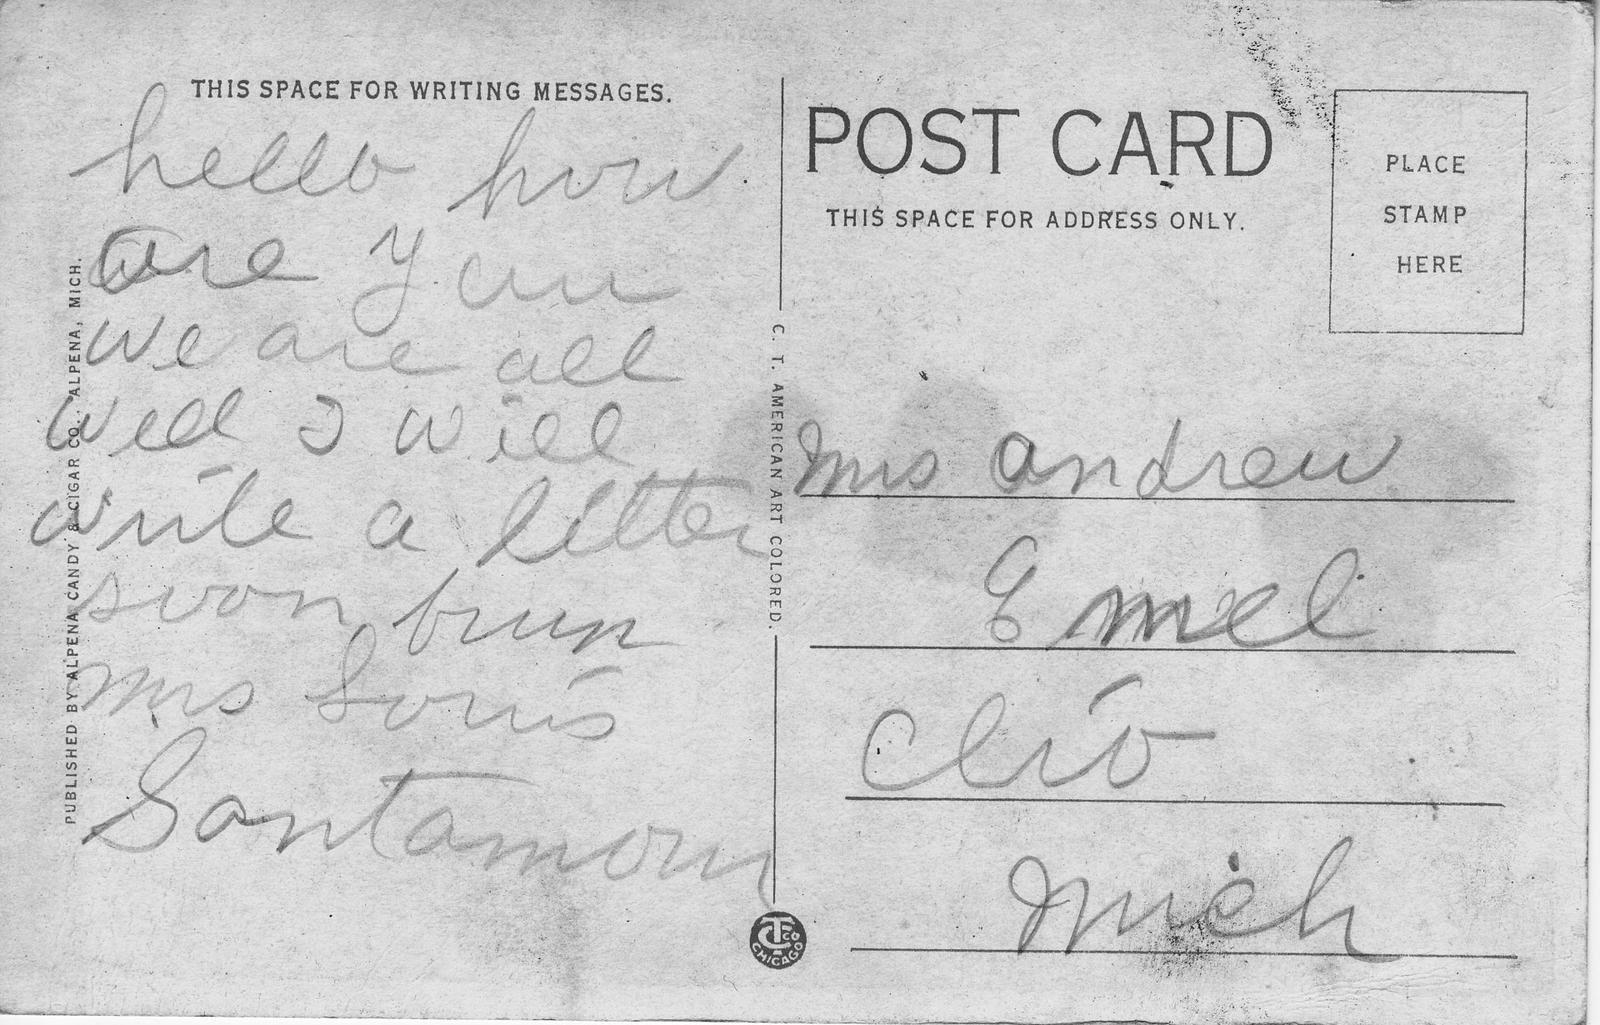 THIS SPACE FOR WRITING MESSAGES.
hello how
are you
we are all
well I will
write a letter
soon from
Mrs Louis
Santamour
PUBLISHED BY ALPENA CANDY & CIGAR CO., ALPENA, MICH.
C. T. AMERICAN ART COLORED.
POST CARD
THIS SPACE FOR ADDRESS ONLY.
PLACE
STAMP
HERE
Mrs Andrew
Emel
Clio
Mich
CT CO
CHICAGO